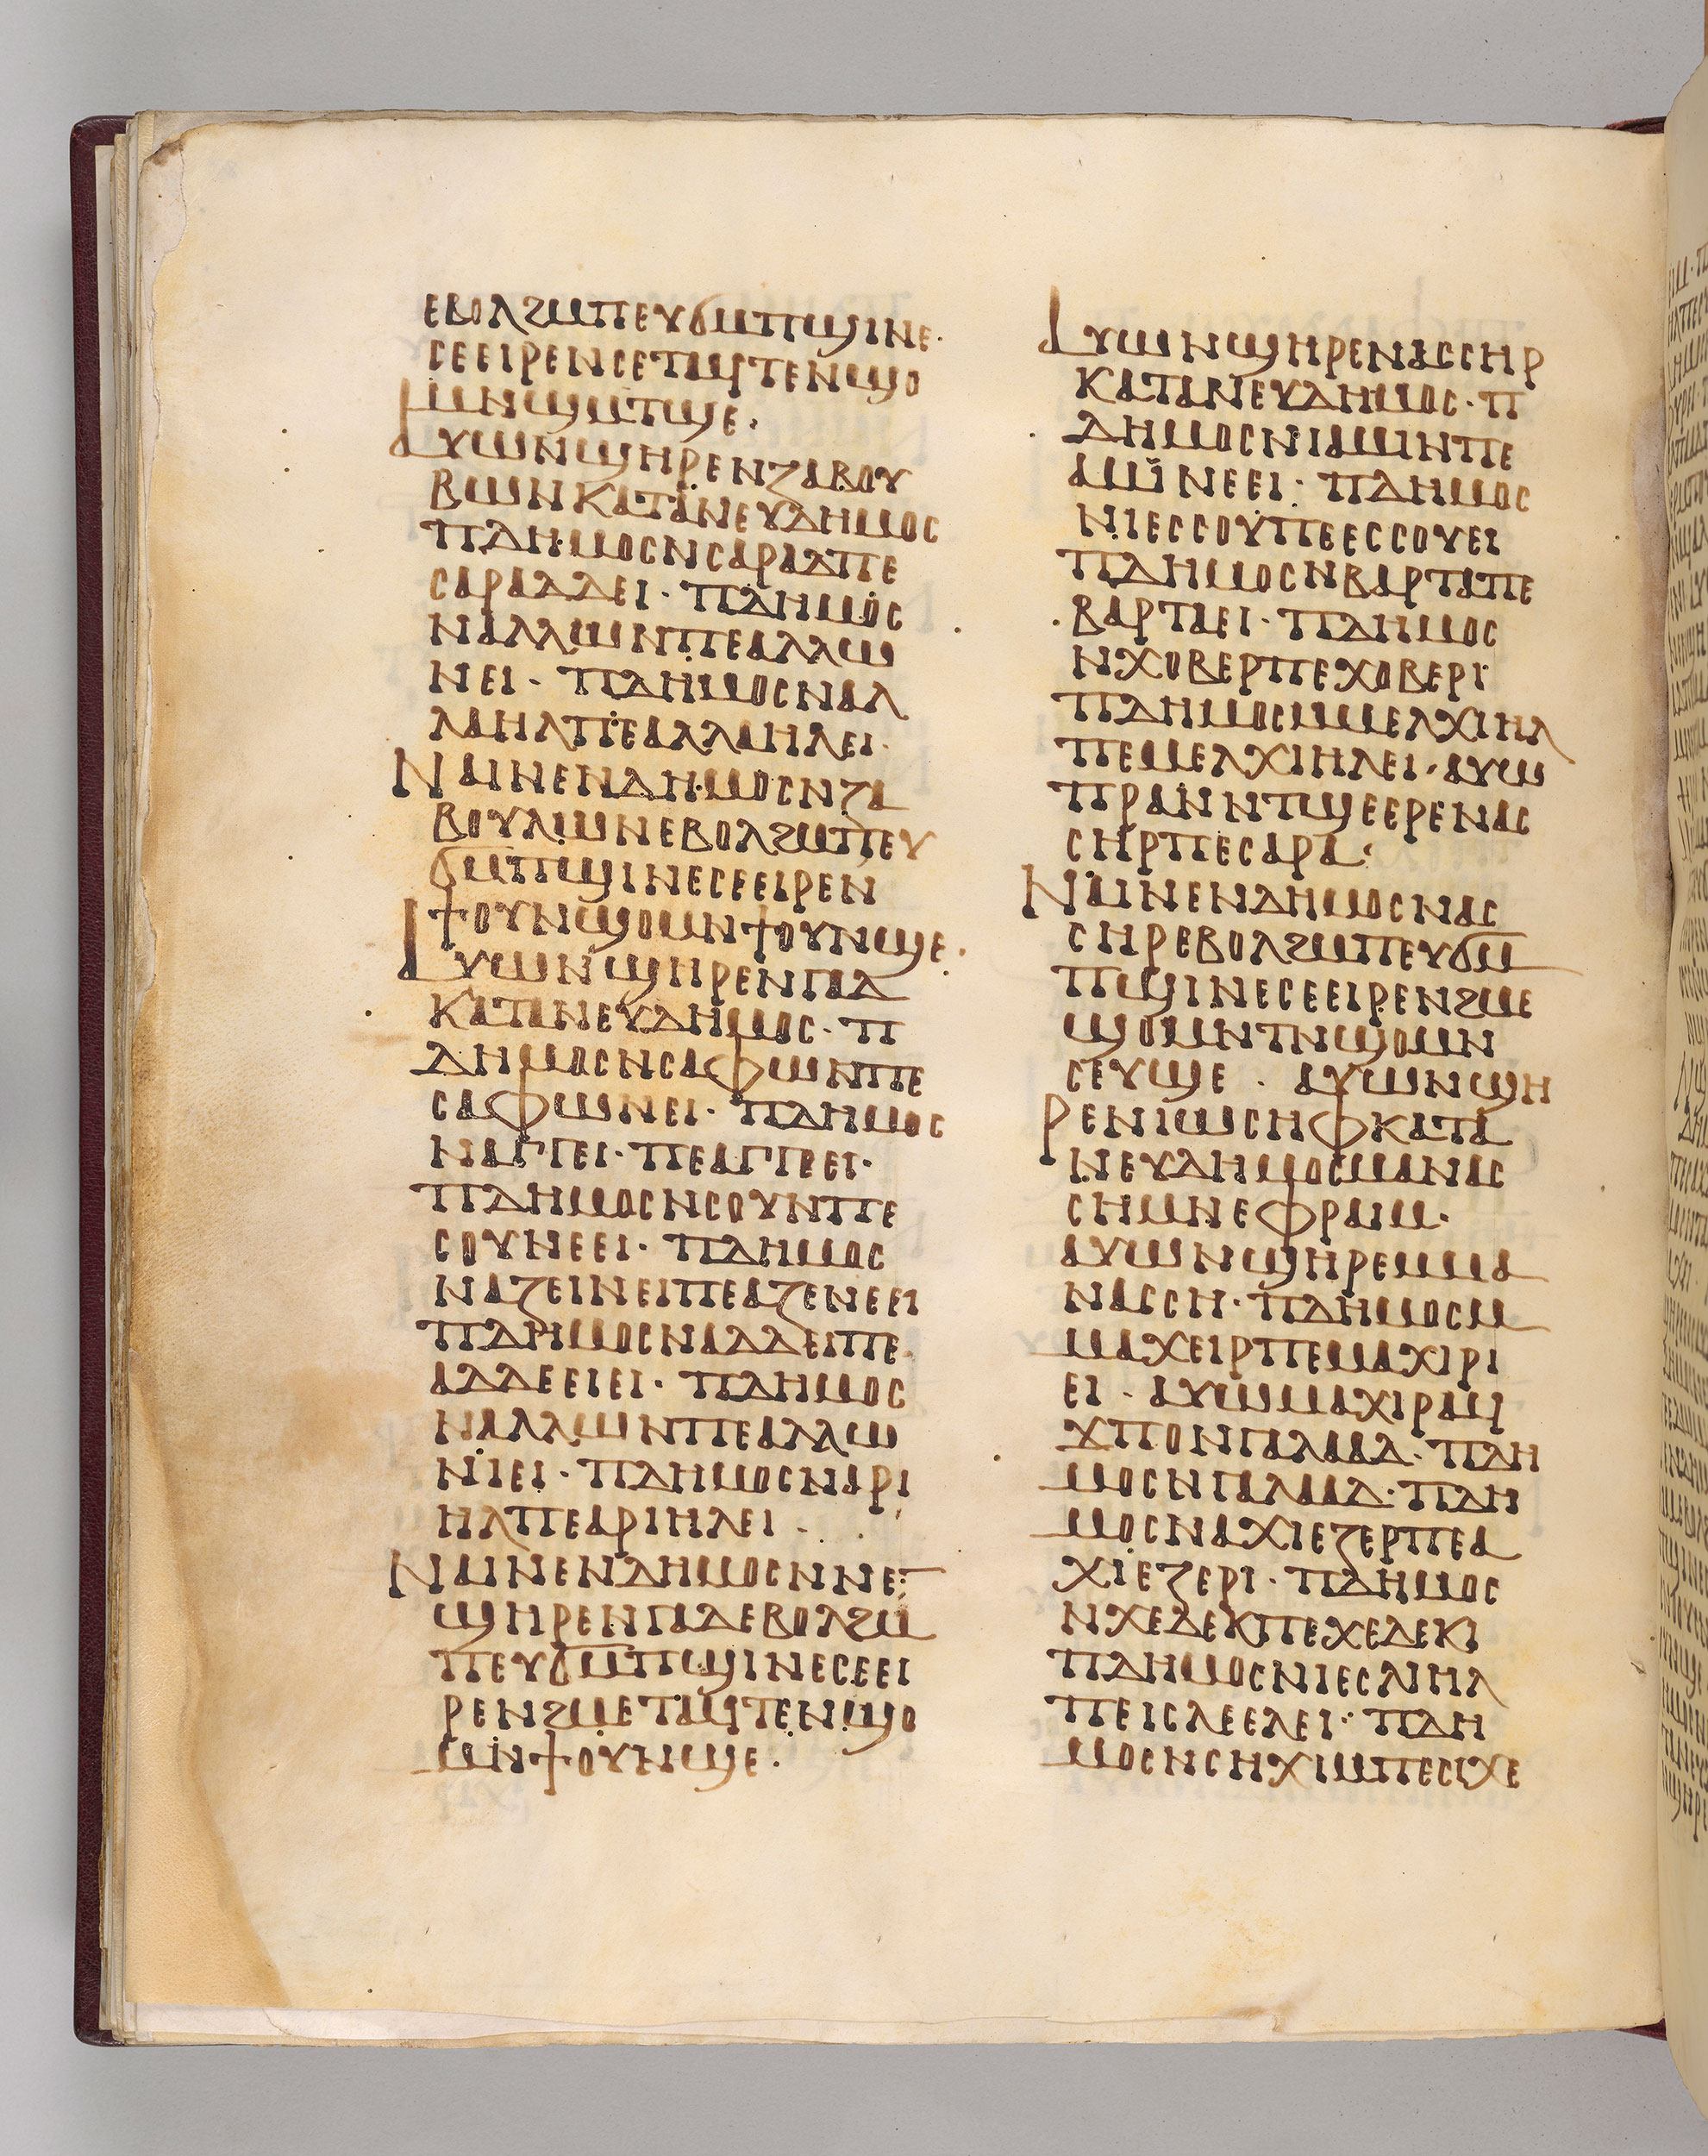 ⲉⲃⲟⲗϩⲙⲡⲉⲩϭⲙⲡϣⲓⲛⲉ·
ⲥⲉⲉⲓⲣⲉⲛⲥⲉⲧⲁϥⲧⲉⲛϣⲟ
ⲙⲛϣⲙⲧϣⲉ·
ⲁⲩⲱⲛϣⲏⲣⲉⲛⲍⲁⲃⲟⲩ
ⲃⲱⲛⲕⲁⲧⲁⲛⲉⲩⲇⲏⲙⲟⲥ
ⲡⲇⲏⲙⲟⲥⲛⲥⲁⲣⲁⲇⲡⲉ
ⲥⲁⲣⲁⲇⲇⲉⲓ· ⲡⲇⲏⲙⲟⲥ
ⲛⲁⲗⲗⲱⲛⲡⲉⲁⲗⲗⲱ
ⲛⲉⲓ· ⲡⲇⲏⲙⲟⲥⲛⲁⲗ
ⲗⲁⲏⲗⲡⲉⲁⲗⲗⲁⲏⲗⲉⲓ·
ⲛⲁⲓⲛⲉⲛⲇⲏⲙⲟⲥⲛⲍⲁ
ⲃⲟⲩⲗⲱⲛⲉⲃⲟⲗϩⲙⲡⲉⲩ
ϭⲙⲡϣⲓⲛⲉⲥⲉⲉⲓⲣⲉⲛ
ϯⲟⲩⲛϣⲟⲙⲛϯⲟⲩⲛϣⲉ·
ⲁⲩⲱⲛϣⲏⲣⲉⲛⲅⲁⲇ
ⲕⲁⲧⲁⲛⲉⲩⲇⲏⲙⲟⲥ· ⲡ
ⲇⲏⲙⲟⲥⲛⲥⲁⲫⲱⲛⲡⲉ
ⲥⲁⲫⲱⲛⲉⲓ· ⲡⲇⲏⲙⲟⲥ
ⲛⲁⲅⲅⲉⲓ· ⲡⲉⲁⲅⲅⲉⲉⲓ·
ⲡⲇⲏⲙⲟⲥⲛⲥⲟⲩⲛⲡⲉ
ⲥⲟⲩⲛⲉⲉⲓ· ⲡⲇⲏⲙⲟⲥ
ⲛⲁⲍⲉⲓⲛⲉⲓⲡⲉⲁⲍⲉⲛⲉⲉⲓ
ⲡⲇⲏⲙⲟⲥⲛⲁⲇⲇⲉⲓⲡⲉ·
ⲁⲇⲇⲉⲉⲓⲉⲓ· ⲡⲇⲏⲙⲟⲥ
ⲛⲁⲗⲗⲱⲛⲡⲉⲁⲗⲗⲱ
ⲛⲓⲉⲓ· ⲡⲇⲏⲙⲟⲥⲛⲁⲣⲓ
ⲏⲗⲡⲉⲁⲣⲓⲏⲗⲉⲓ·
ⲛⲁⲓⲛⲉⲛⲇⲏⲙⲟⲥⲛⲛⲉ
ϣⲏⲣⲉⲛⲅⲁⲇⲉⲃⲟⲗϩⲙ
ⲡⲉⲩϭⲙⲡϣⲓⲛⲉⲥⲉⲉⲓ
ⲣⲉⲛϩⲙⲉⲧⲁϥⲧⲉⲛϣⲟ
ⲙⲛϯⲟⲩⲛϣⲉ·
ⲁⲩⲱⲛϣⲏⲣⲉⲛⲁⲥⲥⲏⲣ
ⲕⲁⲧⲁⲛⲉⲩⲇⲏⲙⲟⲥ· ⲡ
ⲇⲏⲙⲟⲥⲛⲓⲁⲙⲓⲛⲡⲉ
ⲁⲙⲓⲛⲉⲉⲓ· ⲡⲇⲏⲙⲟⲥ
ⲛⲓⲉⲥⲥⲟⲩⲡⲉⲉⲥⲥⲟⲩⲉⲓ
ⲡⲇⲏⲙⲟⲥⲛⲃⲁⲣⲧⲁⲡⲉ
ⲃⲁⲣⲧⲁⲉⲓ· ⲡⲇⲏⲙⲟⲥ
ⲛⲭⲟⲃⲉⲣⲡⲉⲭⲟⲃⲉⲣⲓ
ⲡⲇⲏⲙⲟⲥⲙⲙⲉⲗⲭⲓⲏⲗ
ⲡⲉⲙⲉⲗⲭⲓⲏⲗⲉⲓ· ⲁⲩⲱ
ⲡⲣⲁⲛⲛⲧϣⲉⲉⲣⲉⲛⲁⲥ
ⲥⲏⲣⲡⲉⲥⲁⲣⲁ:
ⲛⲁⲓⲛⲉⲛⲇⲏⲙⲟⲥⲛⲁⲥ
ⲥⲏⲣⲉⲃⲟⲗϩⲙⲡⲉⲩϭⲙ
ⲡϣⲓⲛⲉⲥⲉⲉⲓⲣⲉⲛϩⲙⲉ
ϣⲟⲙⲛⲧⲛϣⲟⲙⲛ
ⲥⲉⲩϣⲉ · ⲁⲩⲱⲛϣⲏ
ⲣⲉⲛⲓⲱⲥⲏⲫⲕⲁⲧⲁ
ⲛⲉⲩⲇⲏⲙⲟⲥⲙⲁⲛⲁⲥ
ⲥⲏⲙⲛⲉⲫⲣⲁⲓⲙ·
ⲁⲩⲱⲛϣⲏⲣⲉⲙⲙⲁ
ⲛⲁⲥⲥⲏ· ⲡⲇⲏⲙⲟⲥⲙ
ⲙⲁⲭⲉⲓⲣⲡⲉⲙⲁⲭⲓⲣⲓ
ⲉⲓ· ⲁⲩⲱⲙⲁⲭⲓⲣⲁϥ
ϫⲡⲟⲛⲅⲁⲗⲁⲁⲇ· ⲡⲇⲏ
ⲙⲟⲥⲛⲅⲁⲗⲁⲁⲇ· ⲡⲇⲏ
ⲙⲟⲥⲛⲁⲭⲓⲉⲍⲉⲣⲡⲉⲁ
ⲭⲓⲉⲍⲉⲣⲓ· ⲡⲇⲏⲙⲟⲥ
ⲛⲭⲉⲇⲉⲕⲡⲉⲭⲉⲇⲉⲕⲓ
ⲡⲇⲏⲙⲟⲥⲛⲓⲉⲥⲗⲓⲏⲗ
ⲡⲉⲓⲥⲗⲉⲉⲗⲉⲓ· ⲡⲇⲏ
ⲙⲟⲥⲛⲥⲏⲭⲓⲙⲡⲉⲥⲓⲭⲉ